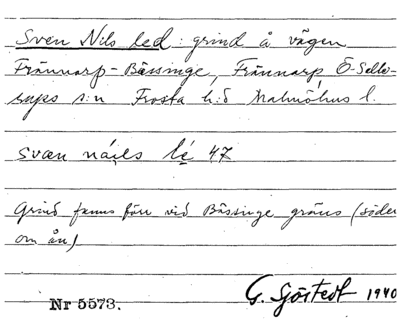 Sven Nils led: grind å vägen
Frännarp-Bässinge, Frännarp, Ö-Salle-
rups s:n Frosta h:d Malmöhus l.
svæn náils lé 47
Grind fanns förr vid Bässinge gräns (söder
om ån)
Nr 5573. G. Sjöstedt 1940